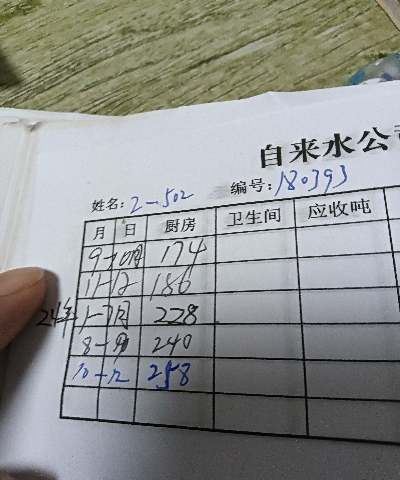 自来水公司
姓名: 2-502 编号: 180393
月 日 厨房 卫生间 应收吨
9-10月 174
11-12 186
24年 1-7月 228
8-9 240
10-12 258